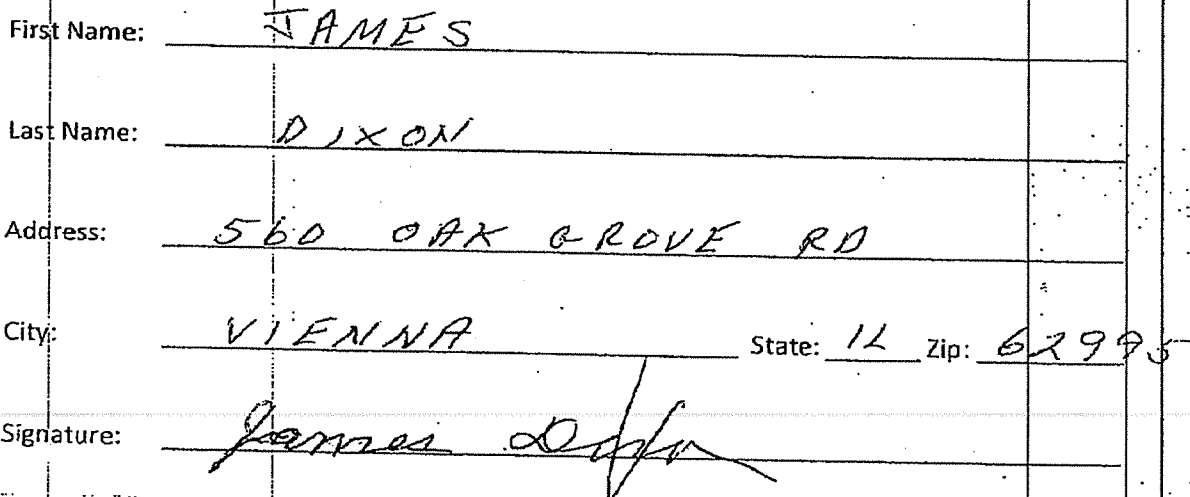 First Name: JAMES
Last Name: DIXON
Address: 560 OAK GROVE RD
City: VIENNA State: IL Zip: 62995
Signature: James Dixon